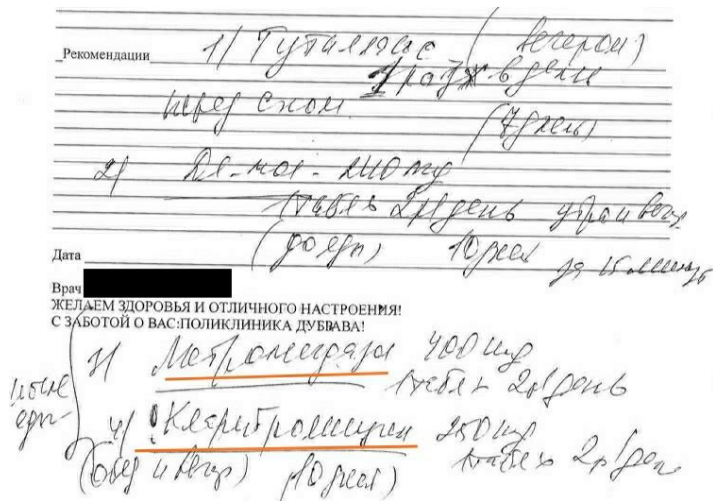 Рекомендации 1) (вечером)
1 раз в день
перед сном
(7 дней)
2) Де-нол - 240 mg
1 табл x 2р/день утром и вечер
(до еды) 10 дней за 15 минут
Дата
Врач
ЖЕЛАЕМ ЗДОРОВЬЯ И ОТЛИЧНОГО НАСТРОЕНИЯ!
С ЗАБОТОЙ О ВАС:ПОЛИКЛИНИКА ДУБРАВА!
после еды
3) Метронидазол 400 mg
1 табл x 2р/день
4) ! Кларитромицин 250 mg
1 табл x 2р/день
(обед и вечер) (10 дней)